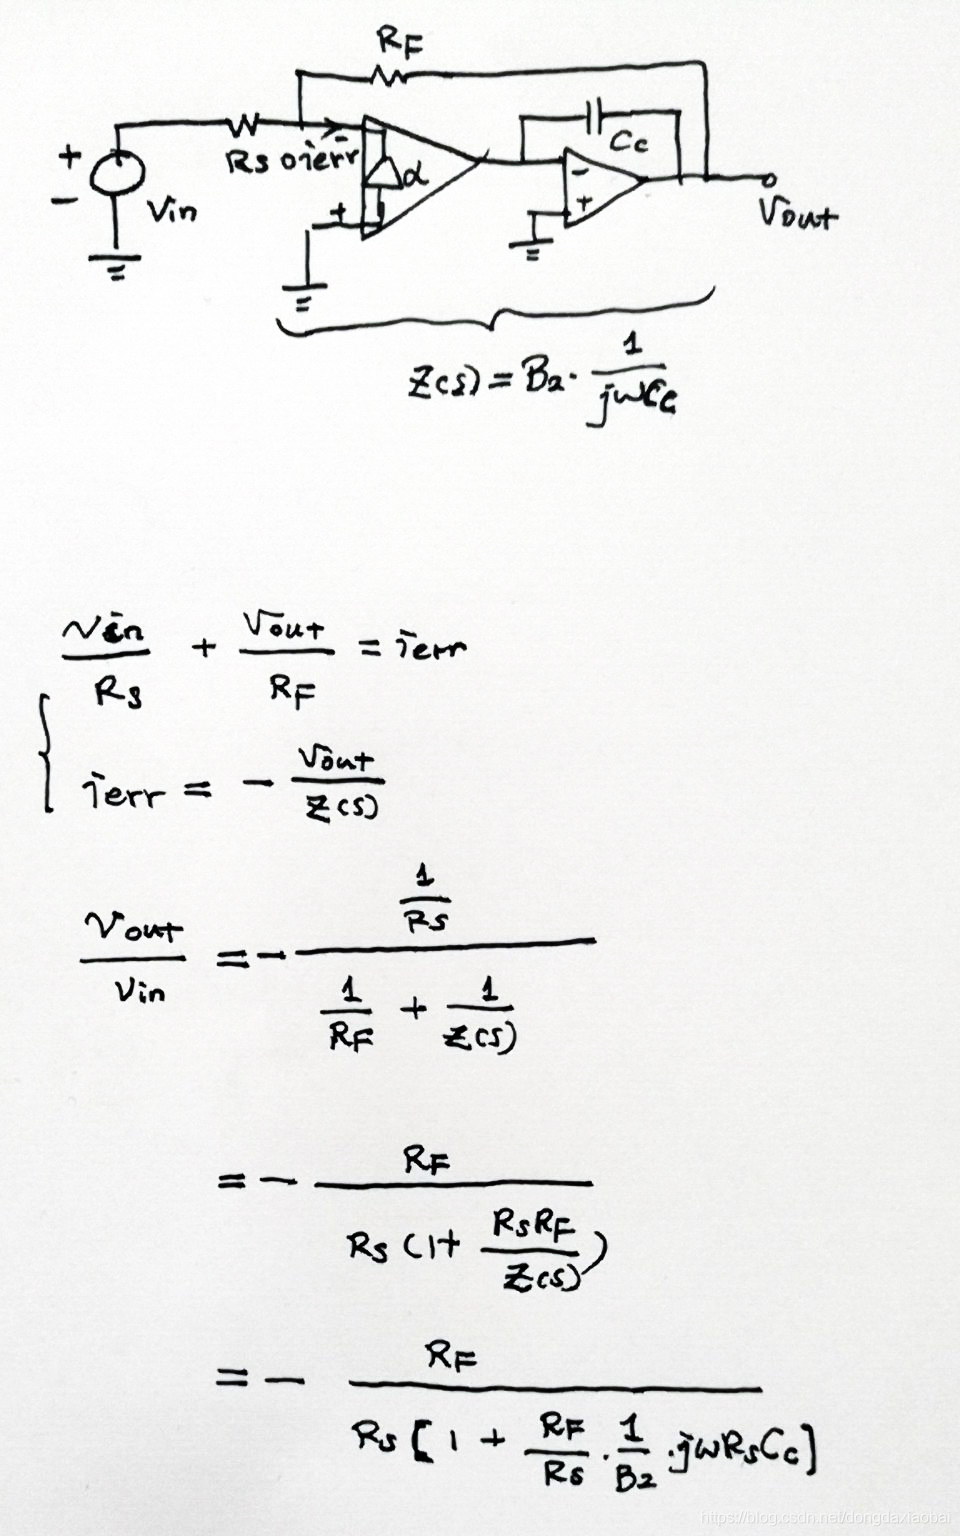 RF
+
Rs ierr
-
α
Cc
-
-
Vin
+
+
Vout
Z(s) = B2 · 1/jωCc
Vin/Rs + Vout/RF = ierr
ierr = - Vout/Z(s)
Vout/Vin = - (1/Rs)/(1/RF + 1/Z(s))
= - RF/Rs(1+ RsRF/Z(s))
= - RF/Rs[1 + RF/Rs · 1/B2 · jωRsCc]
https://blog.csdn.net/dongdaxiaobai